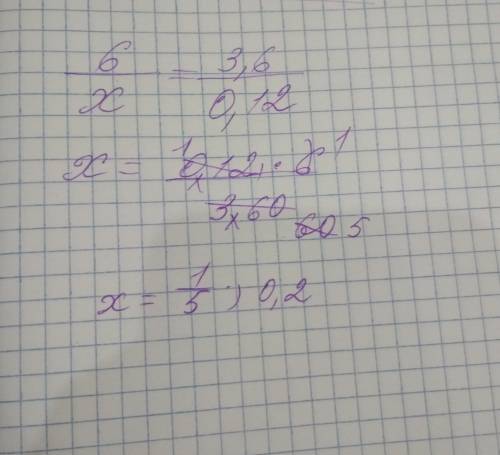 6/x = 3,6/0,12
x = 0,12 · 6 1 1
3,60 60 5
x = 1/5 ; 0,2